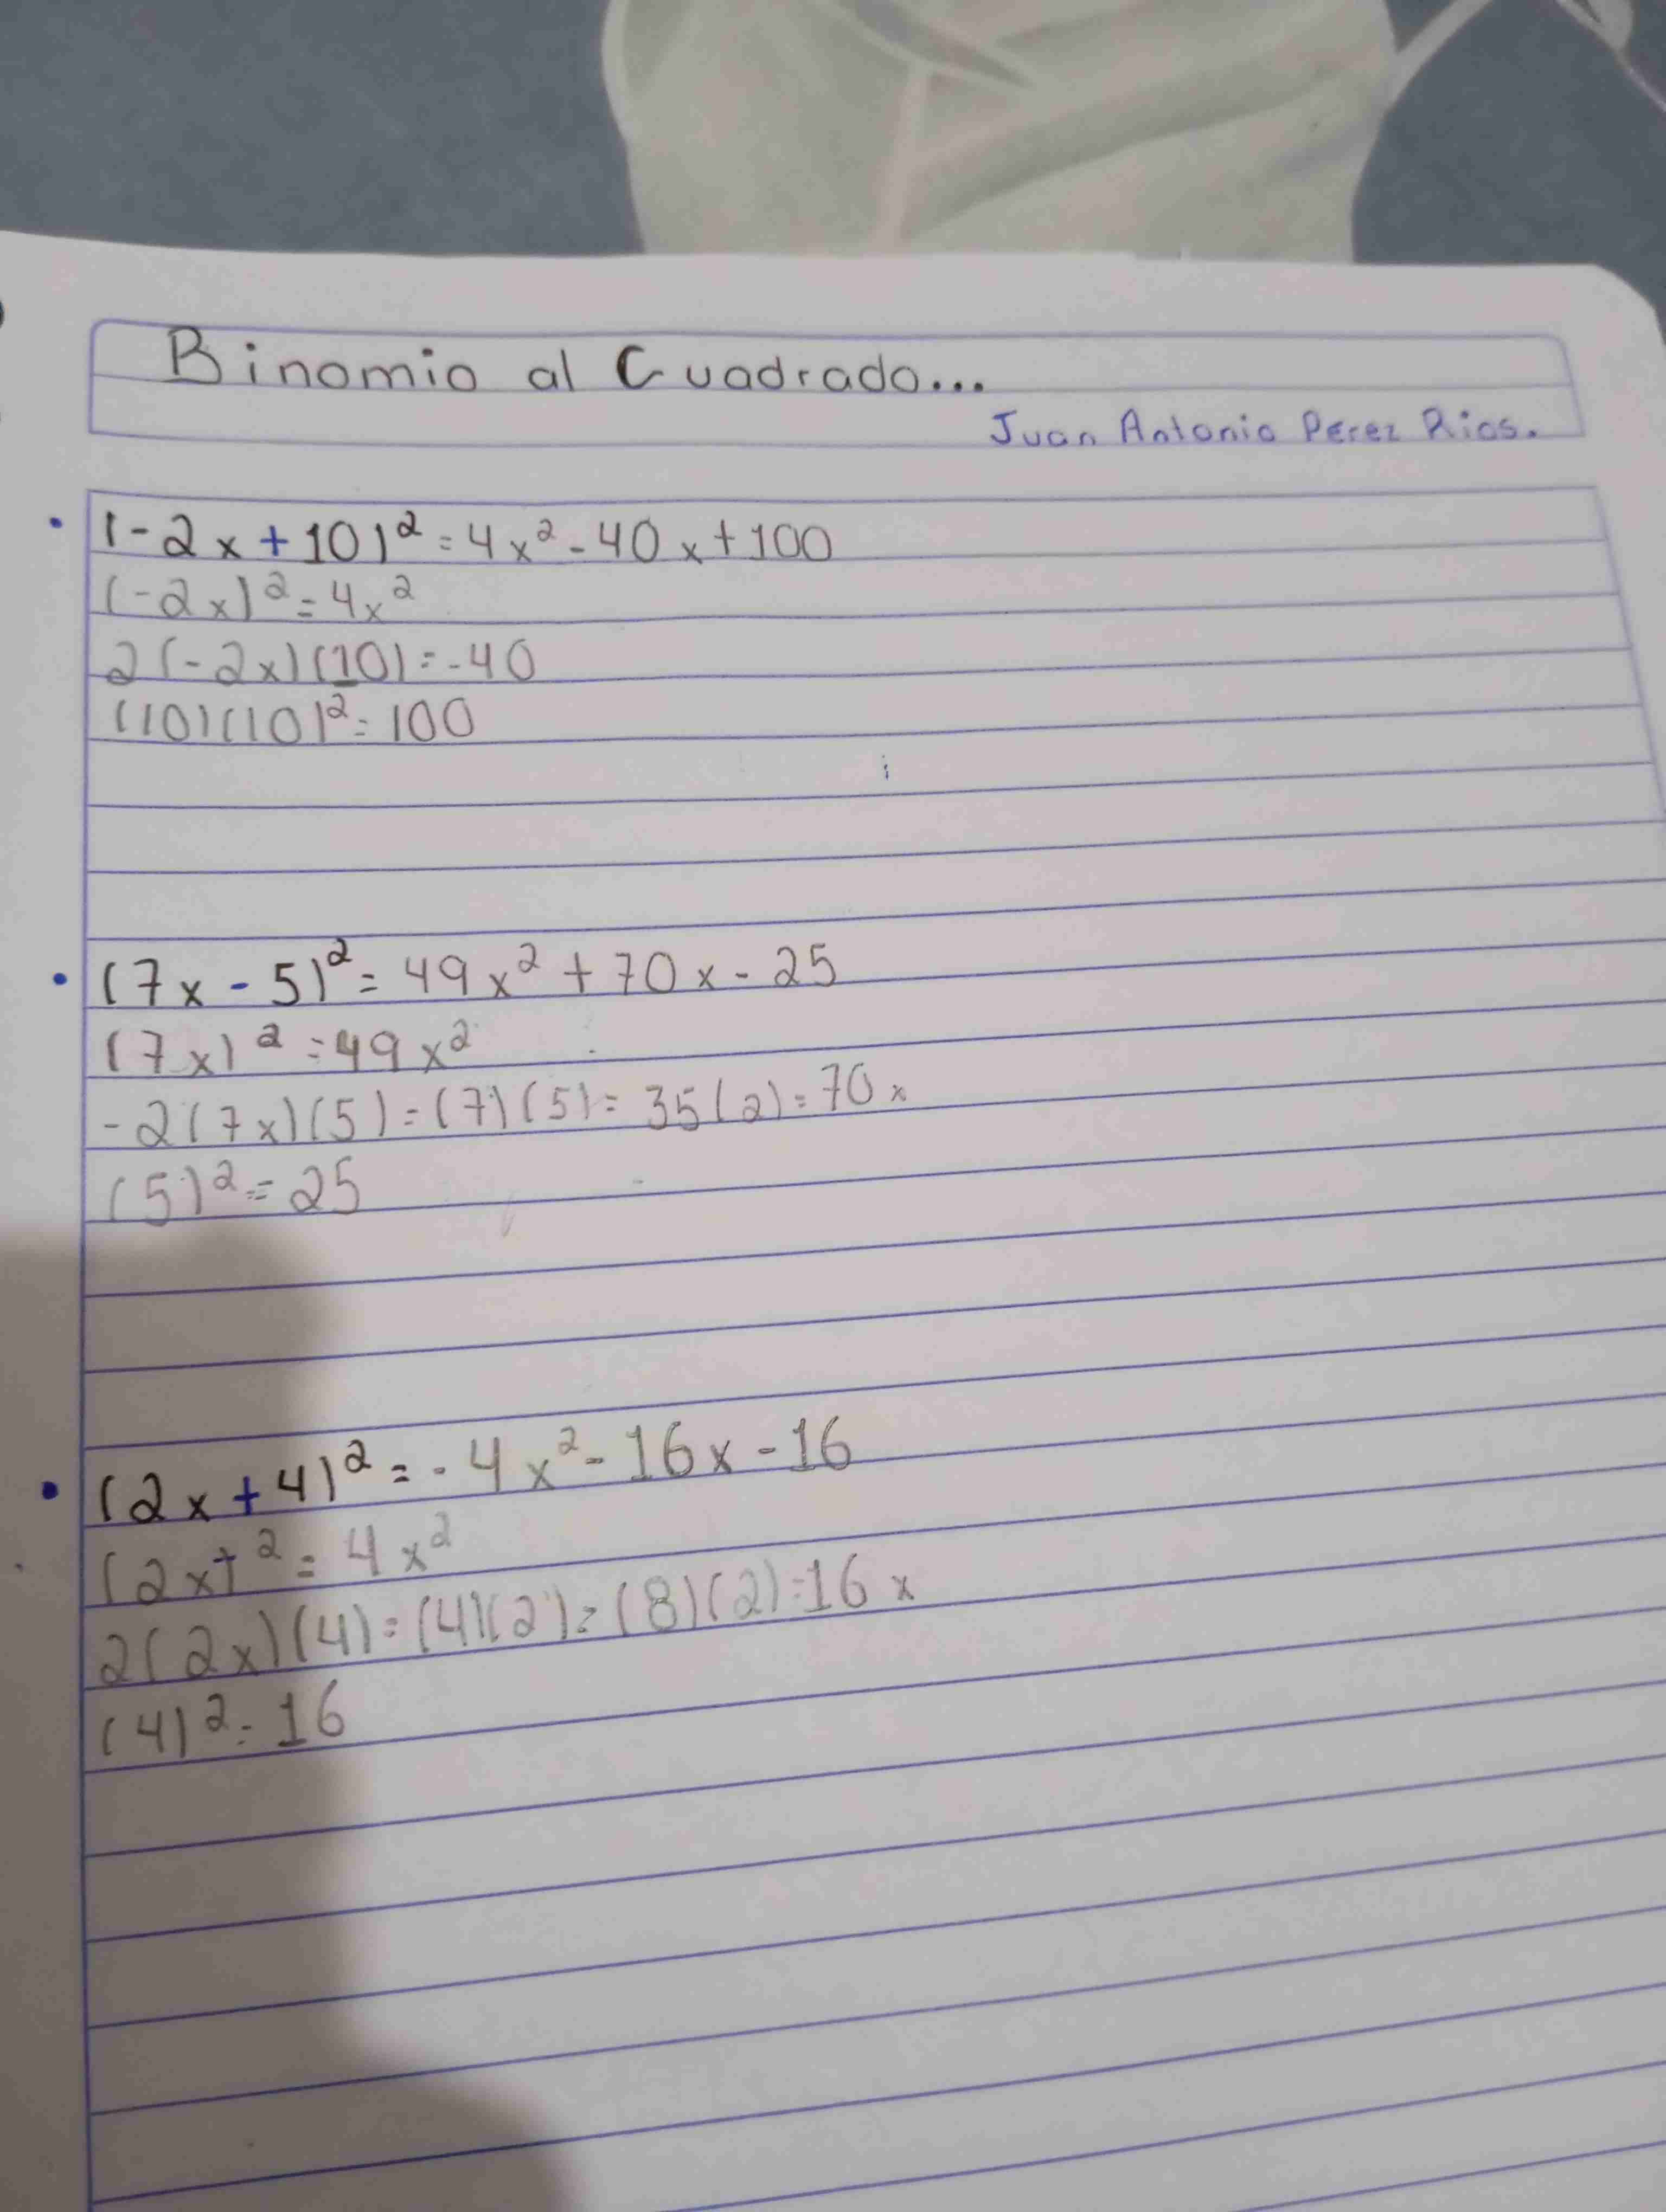 Binomio al Cuadrado...
Juan Antonio Perez Rios.
(-2x+10)²=4x²-40x+100
(-2x)²=4x²
2(-2x)(10)=-40
(10)(10)²=100
(7x-5)²=49x²+70x-25
(7x)²=49x²
-2(7x)(5)=(7)(5)=35(2)=70x
(5)²=25
(2x+4)²=-4x²-16x-16
(2x)²=4x²
2(2x)(4)=(4)(2)=(8)(2)=16x
(4)²=16